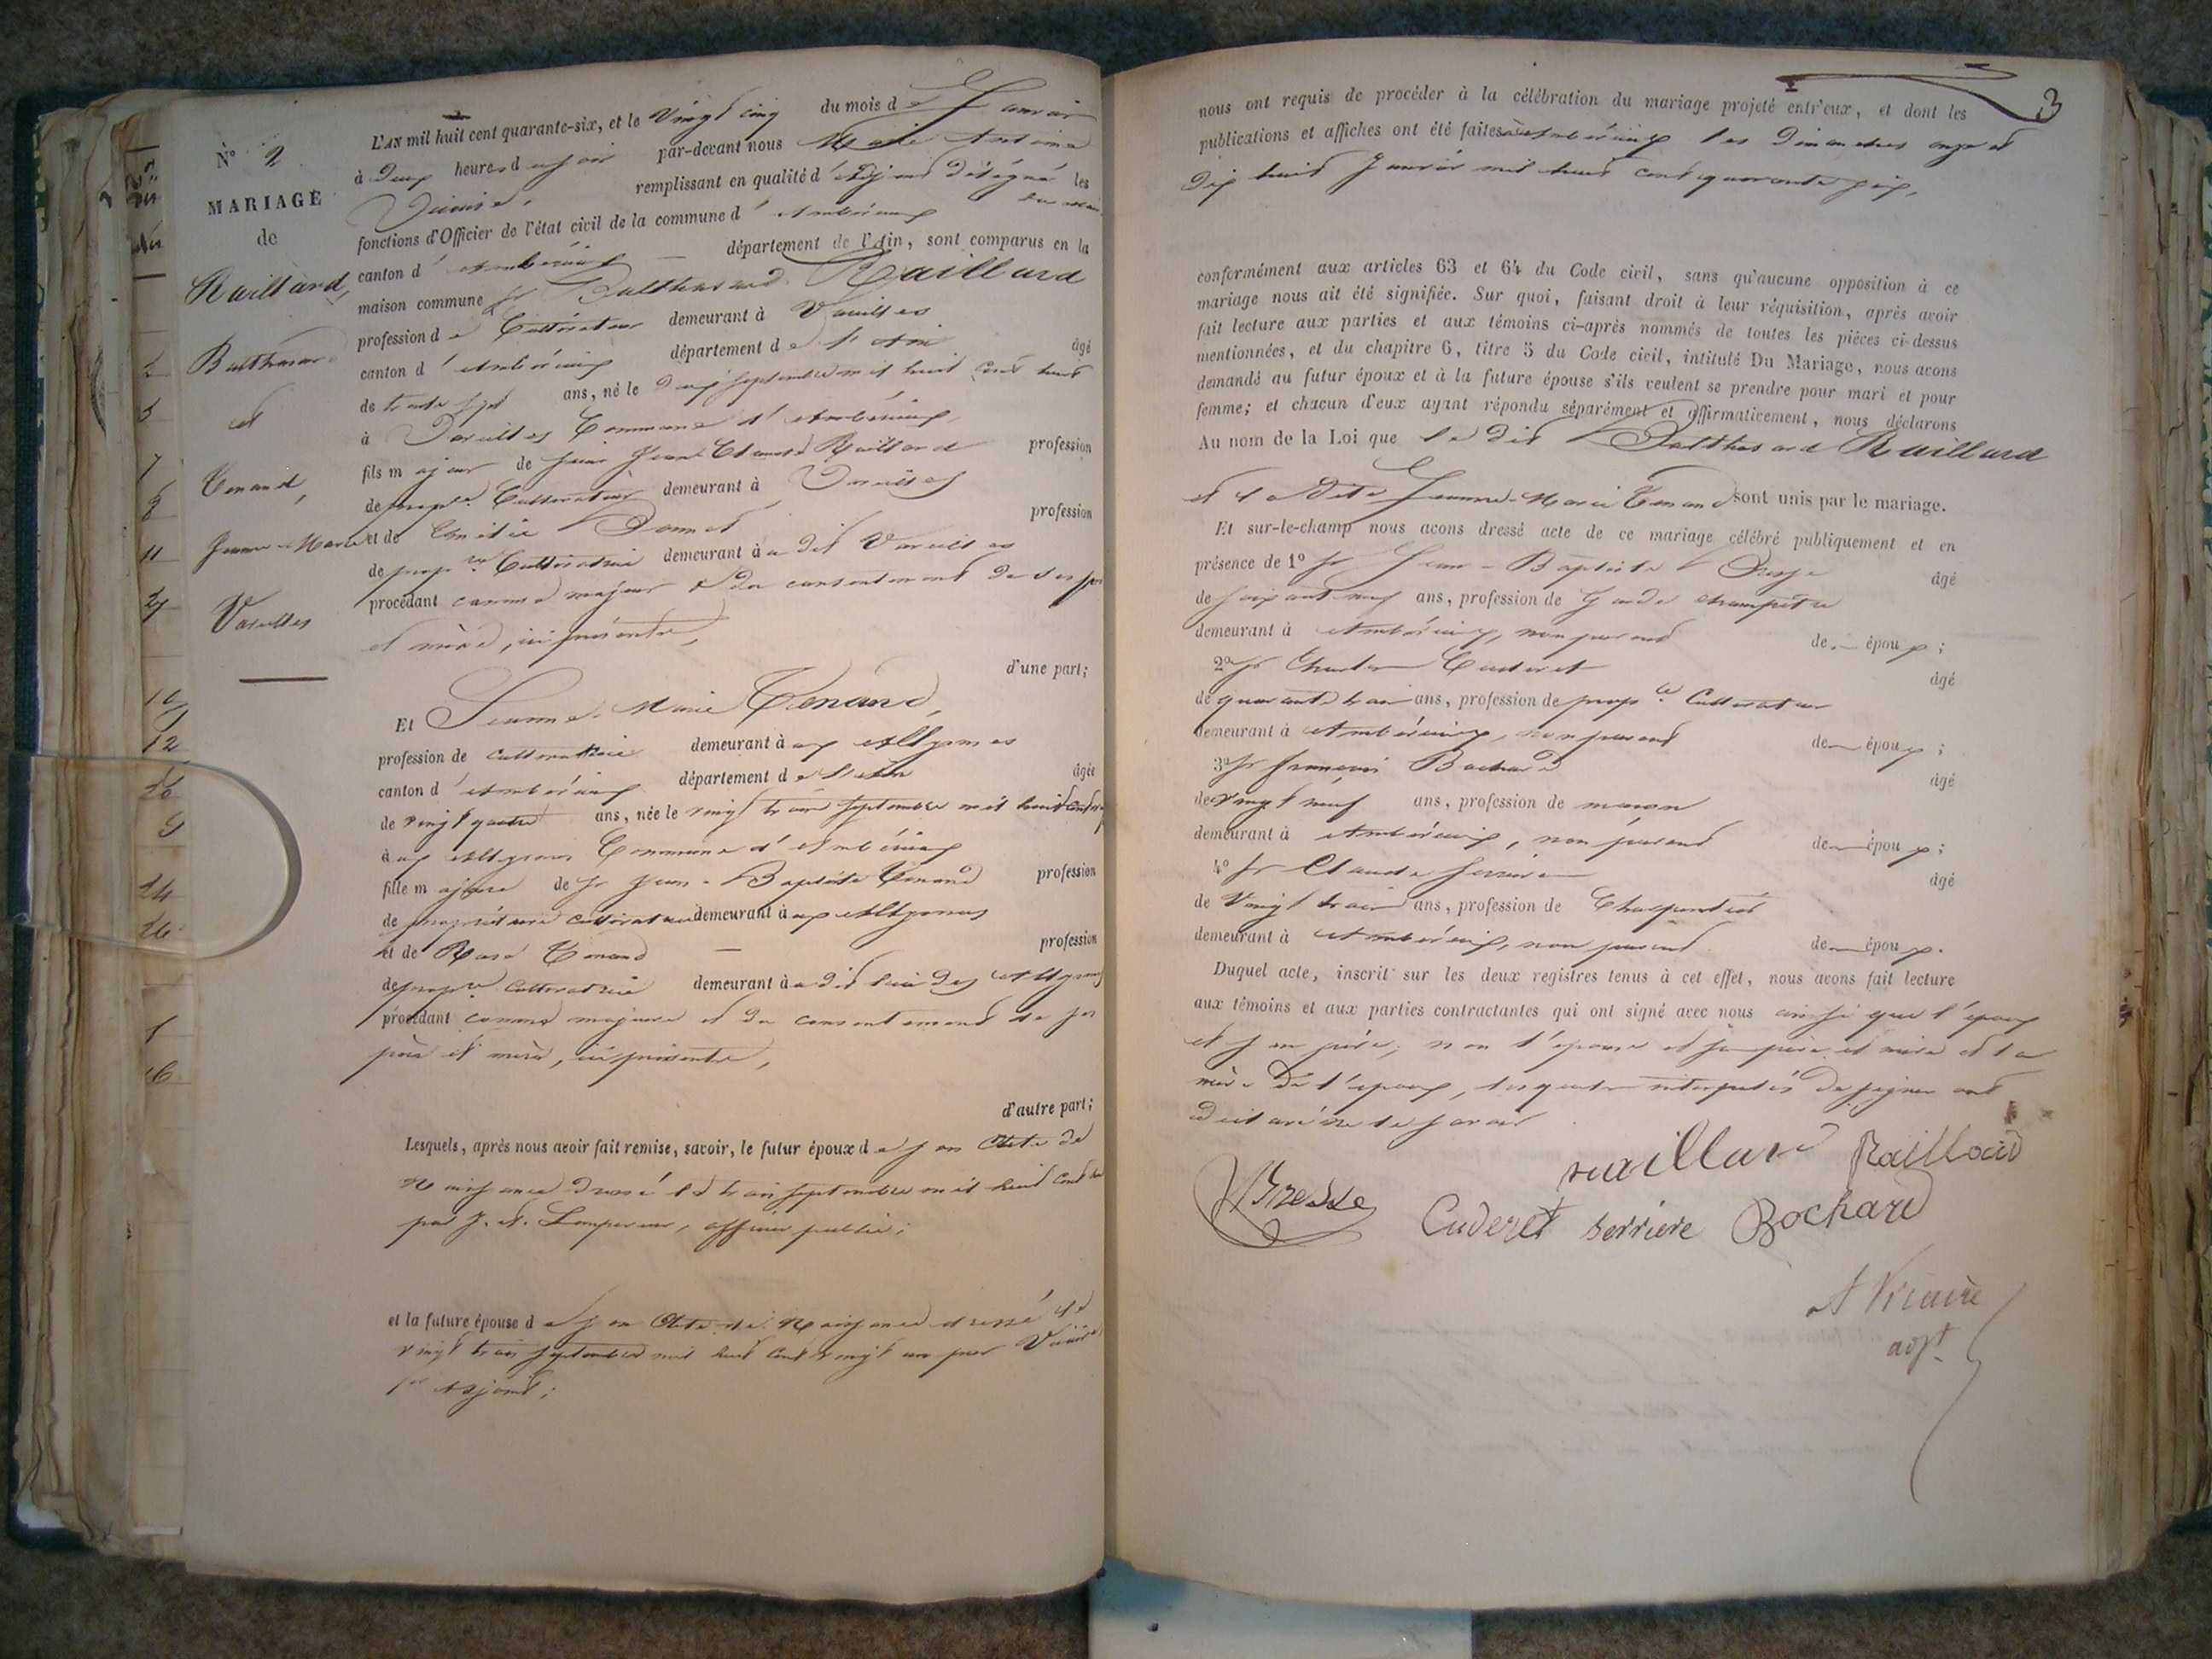 N° 2
MARIAGE
de
Raillard,
Balthasard
et
Tenand,
Jeanne-Marie
Vareilles
L'AN mil huit cent quarante-six, et le vingt cinq du mois de Janvier
à deux heures du soir par-devant nous Marie Antoine
Vicaire, remplissant en qualité d'adjoint délégué les
fonctions d'Officier de l'état civil de la commune d'Ambérieux
canton d'Ambérieux département de l'Ain, sont comparus en la
maison commune Sr Balthasard Raillard
profession de Cultivateur demeurant à Vareilles
canton d'Ambérieux département de l'Ain âgé
de trente sept ans, né le deux septembre mil huit cent huit
à Vareilles Commune d'Ambérieux
fils majeur de Jean Claude Raillard profession
de propre Cultivateur demeurant à Vareilles
et de Bonnet profession
de propre Cultivatrice demeurant à dit Vareilles
procédant comme majeur et du consentement de ses père
et mère, ici présents,
d'une part;
Et Jeanne-Marie Tenand,
profession de cultivatrice demeurant aux Allymes
canton d'Ambérieux département de l'Ain âgée
de vingt quatre ans, née le vingt trois septembre mil huit cent
aux Allymes Commune d'Ambérieux
fille majeure de Sr Jean-Baptiste Tenand profession
de propriétaire cultivateur demeurant aux Allymes
et de Rose Tenand — profession
de propre cultivatrice demeurant au dit lieu des Allymes
procédant comme majeure et du consentement de ses
père et mère, ici présents,
d'autre part;
Lesquels, après nous avoir fait remise, savoir, le futur époux de son Acte de
Naissance dressé le trois septembre mil huit cent huit
par J. A. Lempereur, officier public;
et la future épouse de son Acte de Naissance dressé le
vingt trois septembre mil huit cent vingt un par Vicaire
adjoint;
3
nous ont requis de procéder à la célébration du mariage projeté entr'eux, et dont les
publications et affiches ont été faites à Ambérieux les Dimanches onze et
dix huit Janvier mil huit cent quarante six,
conformément aux articles 63 et 64 du Code civil, sans qu'aucune opposition à ce
mariage nous ait été signifiée. Sur quoi, faisant droit à leur réquisition, après avoir
fait lecture aux parties et aux témoins ci-après nommés de toutes les pièces ci-dessus
mentionnées, et du chapitre 6, titre 5 du Code civil, intitulé Du Mariage, nous avons
demandé au futur époux et à la future épouse s'ils veulent se prendre pour mari et pour
femme; et chacun d'eux ayant répondu séparément et affirmativement, nous déclarons
Au nom de la Loi que le dit Balthasard Raillard
et la dite Jeanne-Marie Tenand sont unis par le mariage.
Et sur-le-champ nous avons dressé acte de ce mariage célébré publiquement et en
présence de 1° Sr Jean-Baptiste Bresse âgé
de soixant neuf ans, profession de Garde champêtre
demeurant à Ambérieux, non parent de — époux;
2° Sr Charles Cuderet âgé
de quarante trois ans, profession de propre Cultivateur
demeurant à Ambérieux, non parent de — époux;
3° Sr françois Bochard âgé
de vingt neuf ans, profession de maçon
demeurant à Ambérieux, non parent de — époux;
4° Sr Claude Serriere âgé
de vingt trois ans, profession de Charpentier
demeurant à Ambérieux, non parent de — époux.
Duquel acte, inscrit sur les deux registres tenus à cet effet, nous avons fait lecture
aux témoins et aux parties contractantes qui ont signé avec nous ainsi que l'époux
et son père; non l'épouse et ses père et mère et la
mère de l'époux, lesquels interpellés de signer ont
dit ne le savoir
raillard Raillard
Bresse Cuderet serriere Bochard
A Vicaire
adjt